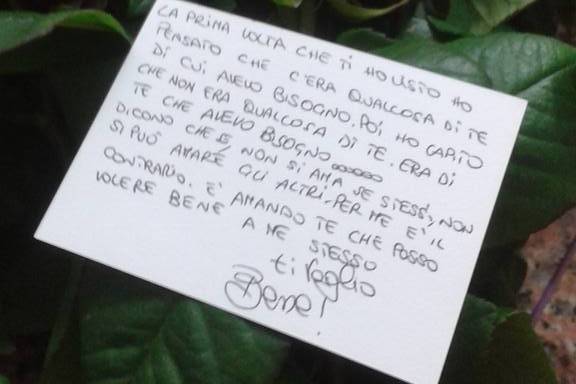 LA PRIMA VOLTA CHE TI HO VISTO HO
PENSATO CHE C'ERA QUALCOSA DI TE
DI CUI AVEVO BISOGNO. POI, HO CAPITO
CHE NON ERA QUALCOSA DI TE. ERA DI
TE CHE AVEVO BISOGNO
DICONO CHE SE NON SI AMA SE STESSI, NON
SI PUÓ AMARE GLI ALTRI. PER ME E' IL
CONTRARIO. E' AMANDO TE CHE POSSO
VOLERE BENE A ME STESSO
ti voglio
Bene!